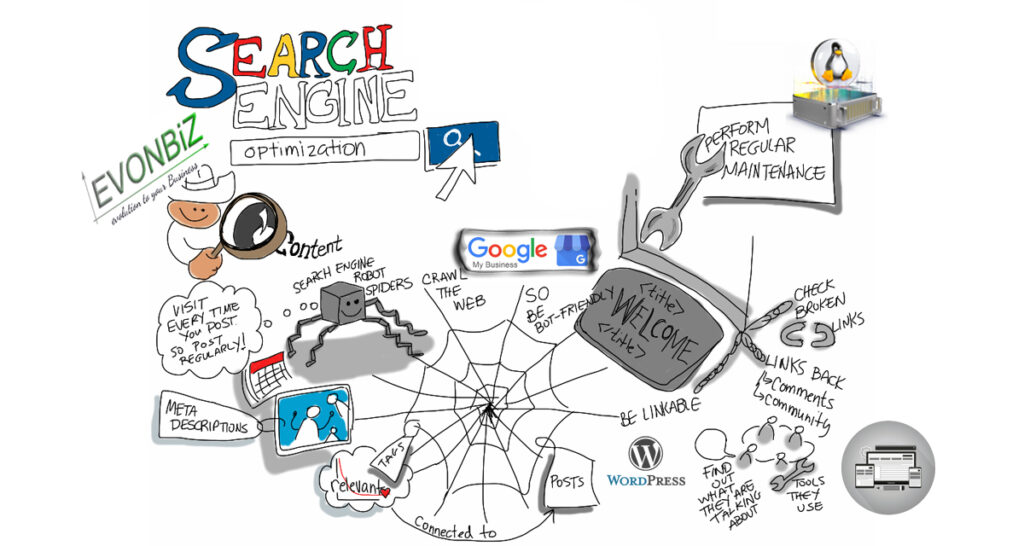 SEARCH
ENGINE
optimization
EVONBIZ
evolution to your Business
Content
PERFORM
REGULAR
MAINTENANCE
Google
My Business
SEARCH ENGINE
ROBOT
SPIDERS
CRAWL
THE
WEB
SO
BE
BOT-FRIENDLY
<title>
WELCOME
</title>
CHECK
BROKEN
LINKS
VISIT
EVERY TIME
YOU POST
SO POST
REGULARLY!
LINKS BACK
Comments
Community
BE LINKABLE
META
DESCRIPTIONS
TAGS
relevant
POSTS
Connected to
WORDPRESS
FIND
OUT
WHAT
THEY ARE
TALKING
ABOUT
TOOLS
THEY
USE